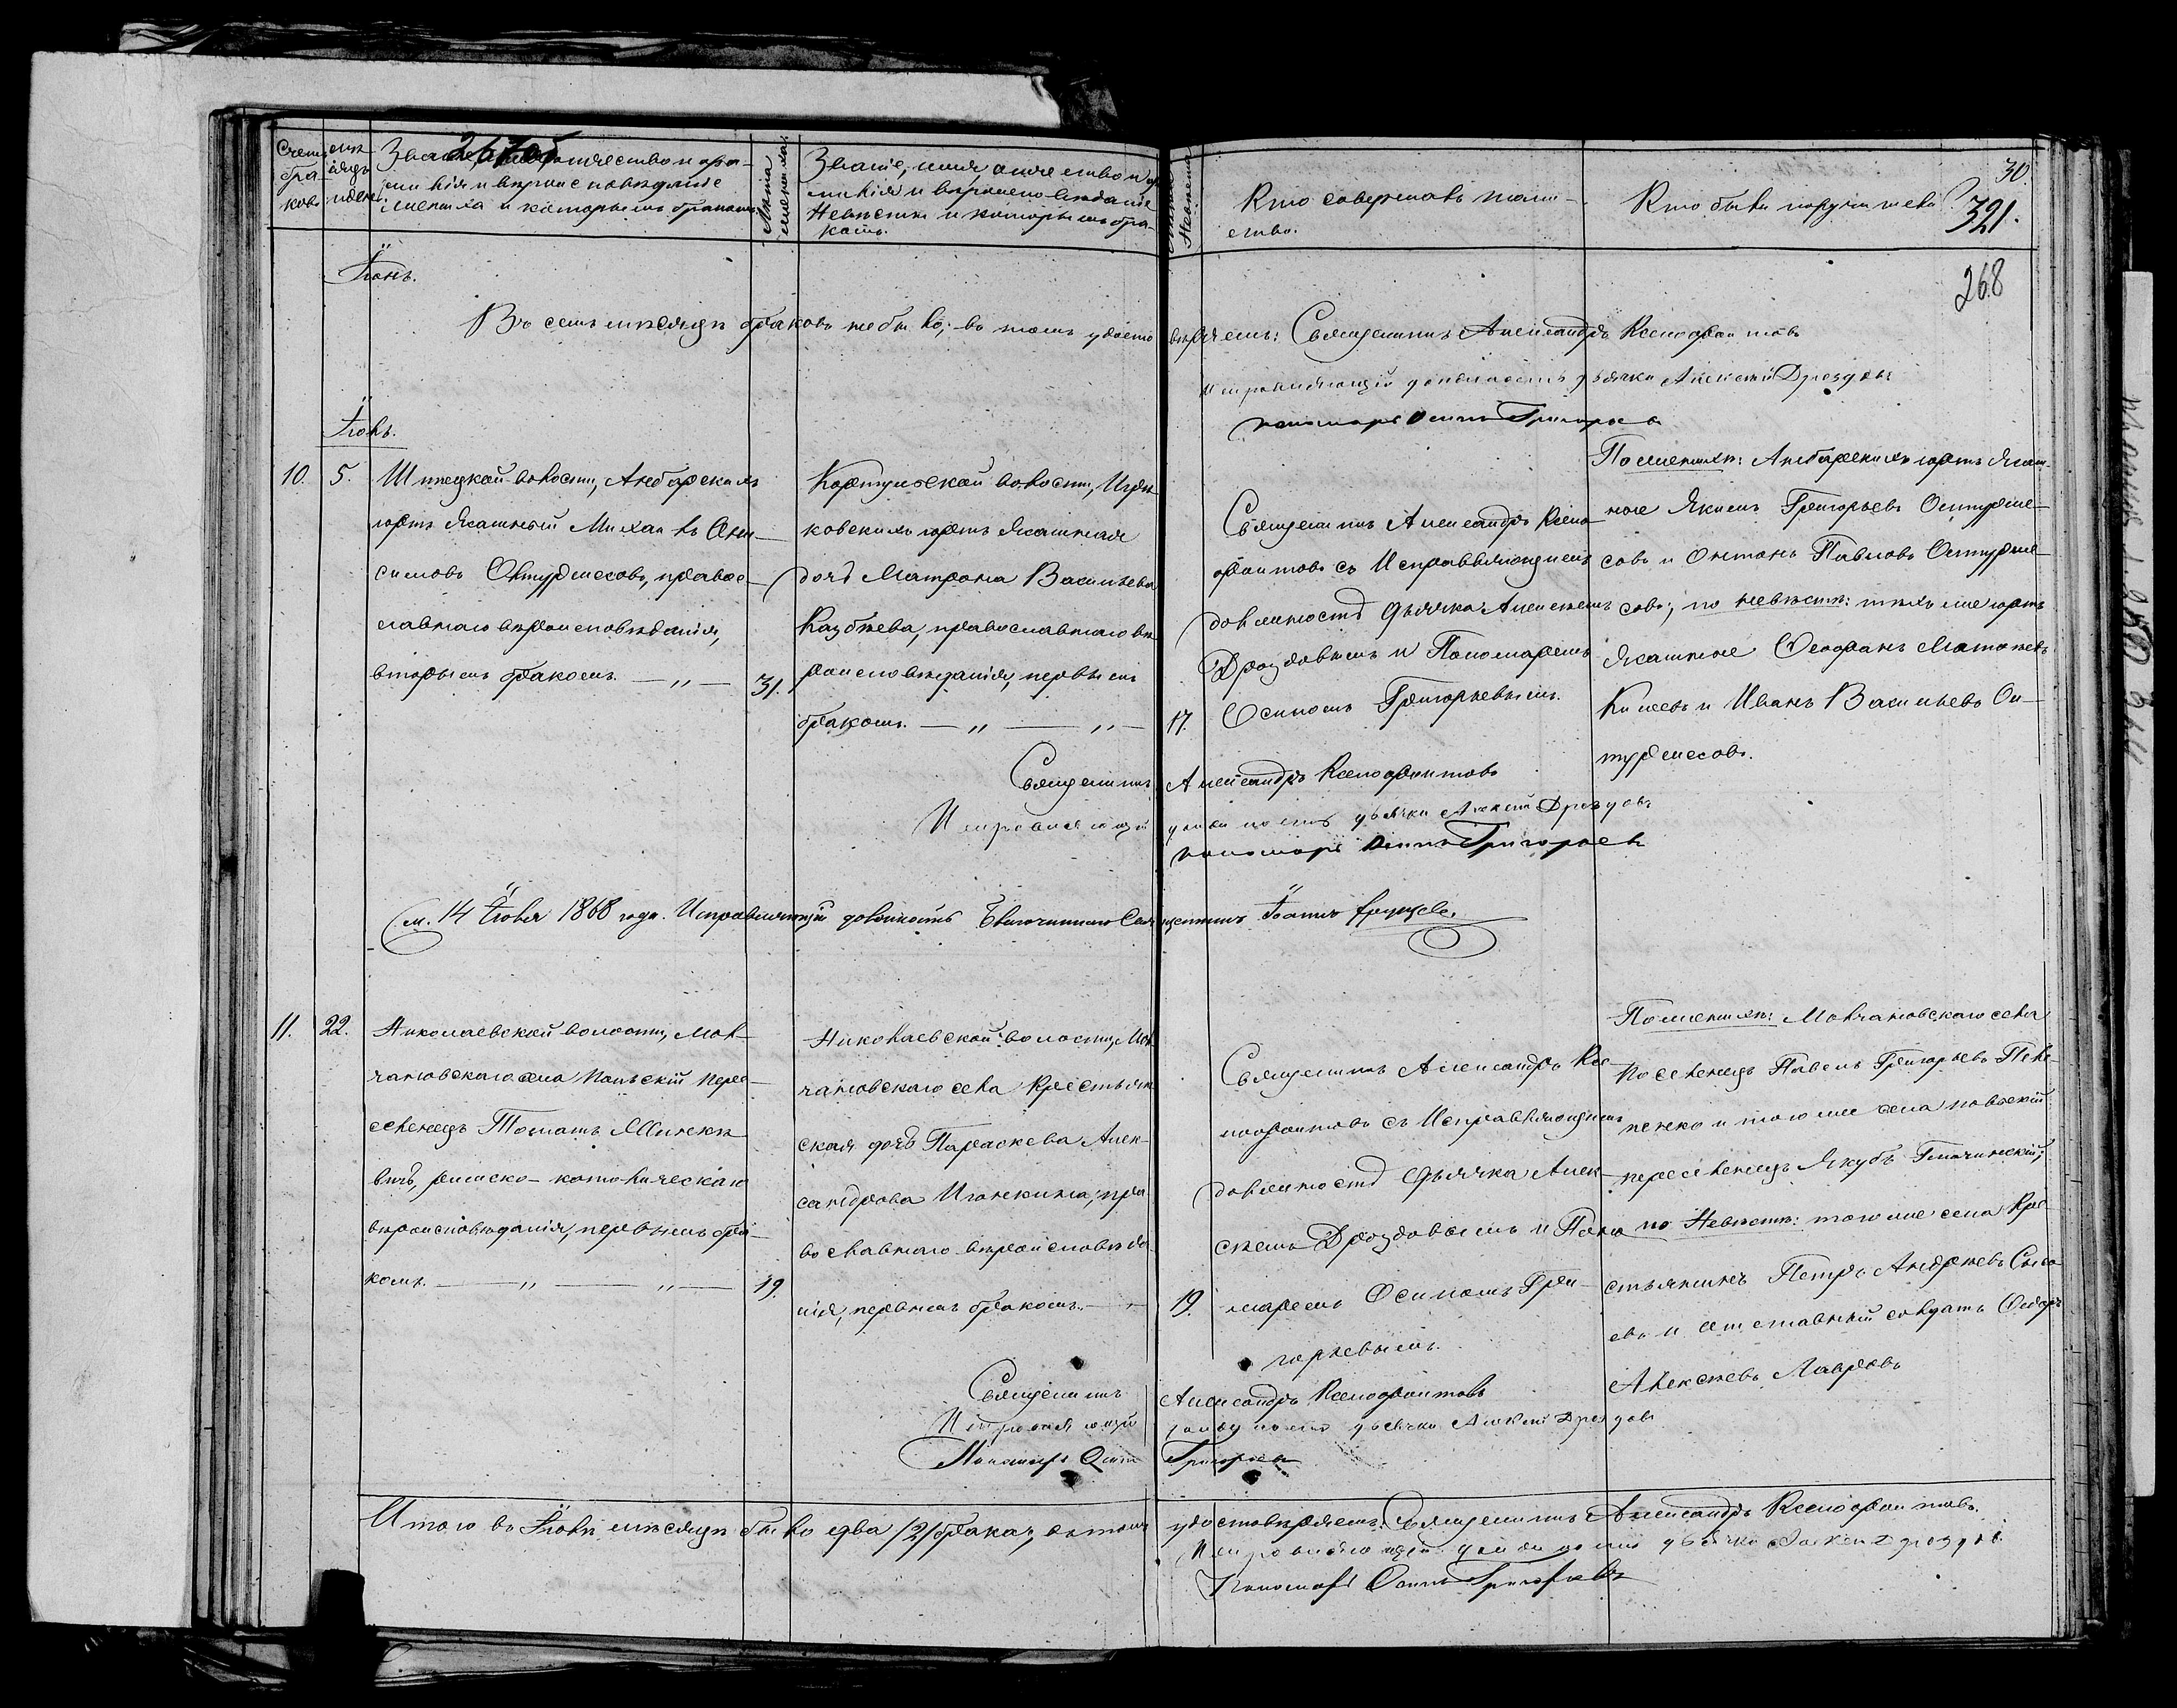 Счетъ бра-ковъ.
Мѣсяцъ и день.
267 об
Званіе, имя, отчество и фа-
милія и вѣроисповѣданіе
жениха и которымъ бракомъ.
Лѣта жениха.
Званіе, имя, отчество и фа-
милія и вѣроисповѣданіе
невѣсты и которымъ бра-
комъ.
Лѣта невѣсты.
Кто совершалъ таин-
ство.
Кто были поручители
30
321.
268
Іюнь.
Въ семъ мѣсяцѣ браковъ не было; въ томъ удосто
вѣряемъ: Священникъ Александръ Ксенофонтовъ
Исправляющій должность дьячка Алексѣй Дроздовъ
пономарь Осипъ Григорьевъ
Іюль.
10.
5.
Шипецкой волости, Амбарскихъ
юртъ Ясашный Михаилъ Они-
симовъ Октурмесовъ, правос-
лавнаго вѣроисповѣданія,
вторымъ бракомъ. — „ —
31.
волости,
ковскихъ юртъ Ясашная
дочь Матрона Васильева
Казбѣева, православнаго вѣ-
роисповѣданія, первымъ
бракомъ. — „ — „ —
17.
Священникъ Александръ Ксено-
фонтовъ съ Исправляющимъ
должность Дьячка Алексѣемъ
Дроздовымъ и Пономаремъ
Осипомъ Григорьевымъ.
По женихѣ: Амбарскихъ юртъ Ясаш-
ные Якимъ Григорьевъ Октурме-
совъ и Антонъ Павловъ Октурме-
совъ; по невѣстѣ: тѣхъ же юртъ
Ясашные Феофанъ
и Иванъ Васильевъ Ок-
турмесовъ.
Священникъ Александръ Ксенофонтовъ
Исправляющій должность дьячка Алексѣй Дроздовъ
пономарь Осипъ Григорьевъ
См. 14 Іюля 1868 года. Исправляющій должность Благочиннаго Священникъ Іоаннъ
11.
22.
Николаевской волости, Мол-
чановскаго села Польскій пере-
селенецъ Томашъ Минке-
вичъ, римско-католическаго
вѣроисповѣданія, первымъ бра-
комъ. — „ — „ —
19.
Николаевской волости, Мол-
чановскаго села Крестьян-
ская дочь Параскева Алек-
сандрова Игонкина, пра-
вославнаго вѣроисповѣда-
нія, первымъ бракомъ. — „
19.
Священникъ Александръ Ксе-
нофонтовъ съ Исправляющимъ
должность Дьячка Алек-
сѣемъ Дроздовымъ и Поно-
маремъ Осипомъ Гри-
горьевымъ.
По женихѣ: Молчановскаго села
Поселенецъ Павелъ Григорьевъ
и того же села польскій
переселенецъ Якубъ
по Невѣстѣ: того же села Кре-
стьянинъ Петръ Андреевъ
и отставный солдатъ Федоръ
Алексѣевъ Лавровъ
Священникъ Александръ Ксенофонтовъ
Исправляющій должность дьячка Алексѣй Дроздовъ
Пономарь Осипъ Григорьевъ
Итого въ Іюлѣ мѣсяцѣ было два /2/ брака, въ томъ
удостовѣряемъ: Священникъ Александръ Ксенофонтовъ.
Исправляющій должность дьячка Алексѣй Дроздовъ
Пономарь Осипъ Григорьевъ